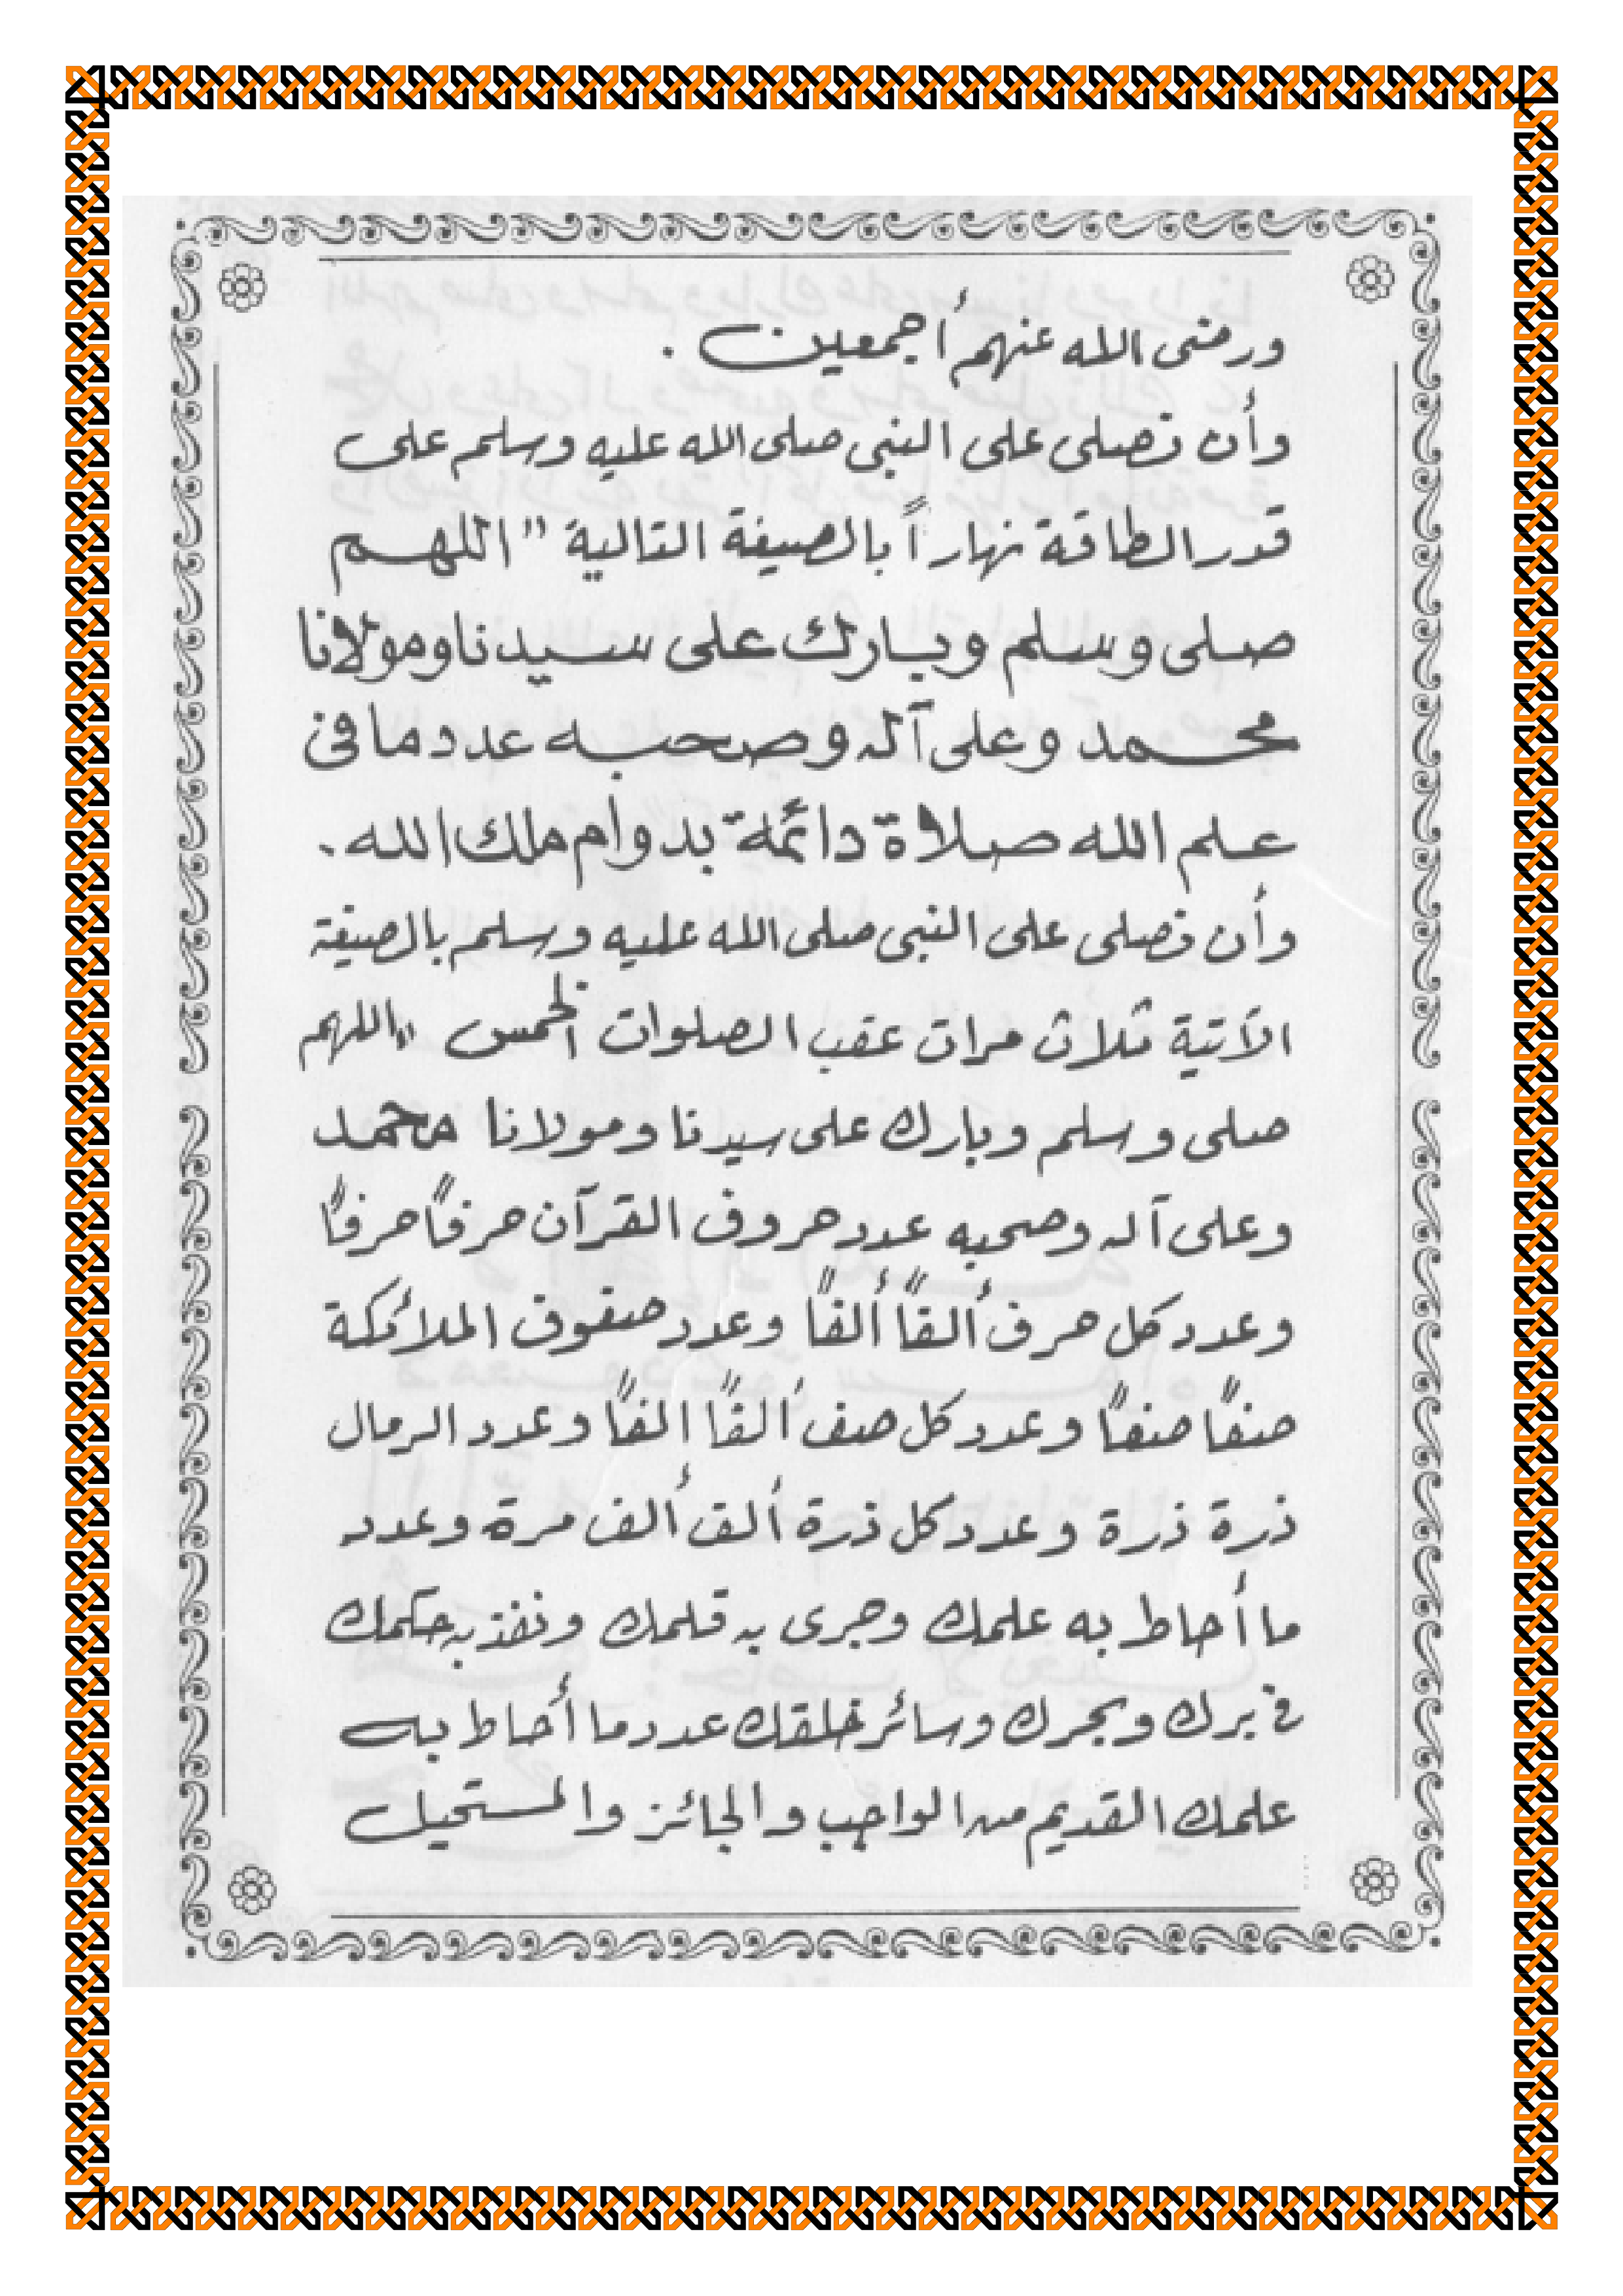 ورضى الله عنهم أجمعين .
وأن تصلى على النبى صلى الله عليه وسلم على
قدر الطاقة نهاراً بالصيغة التالية " اللهم
صلى وسلم وبارك على سيدنا ومولانا
محمد وعلى آله وصحبه عدد ما فى
علم الله صلاة دائمة بدوام ملك الله .
وأن تصلى على النبى صلى الله عليه وسلم بالصيغة
الآتية ثلاث مرات عقب الصلوات الخمس "اللهم
صلى وسلم وبارك على سيدنا ومولانا محمد
وعلى آله وصحبه عدد حروف القرآن حرفاً حرفاً
وعدد كل حرف ألفاً ألفاً وعدد صفوف الملائكة
صفاً صفاً وعدد كل صف ألفاً الفاً وعدد الرمال
ذرة ذرة وعدد كل ذرة ألف ألف مرة وعدد
ما أحاط به علمك وجرى به قلمك ونفذ به حكمك
فى برك وبحرك وسائر خلقك عدد ما أحاط به
علمك القديم من الواجب والجائز والمستحيل